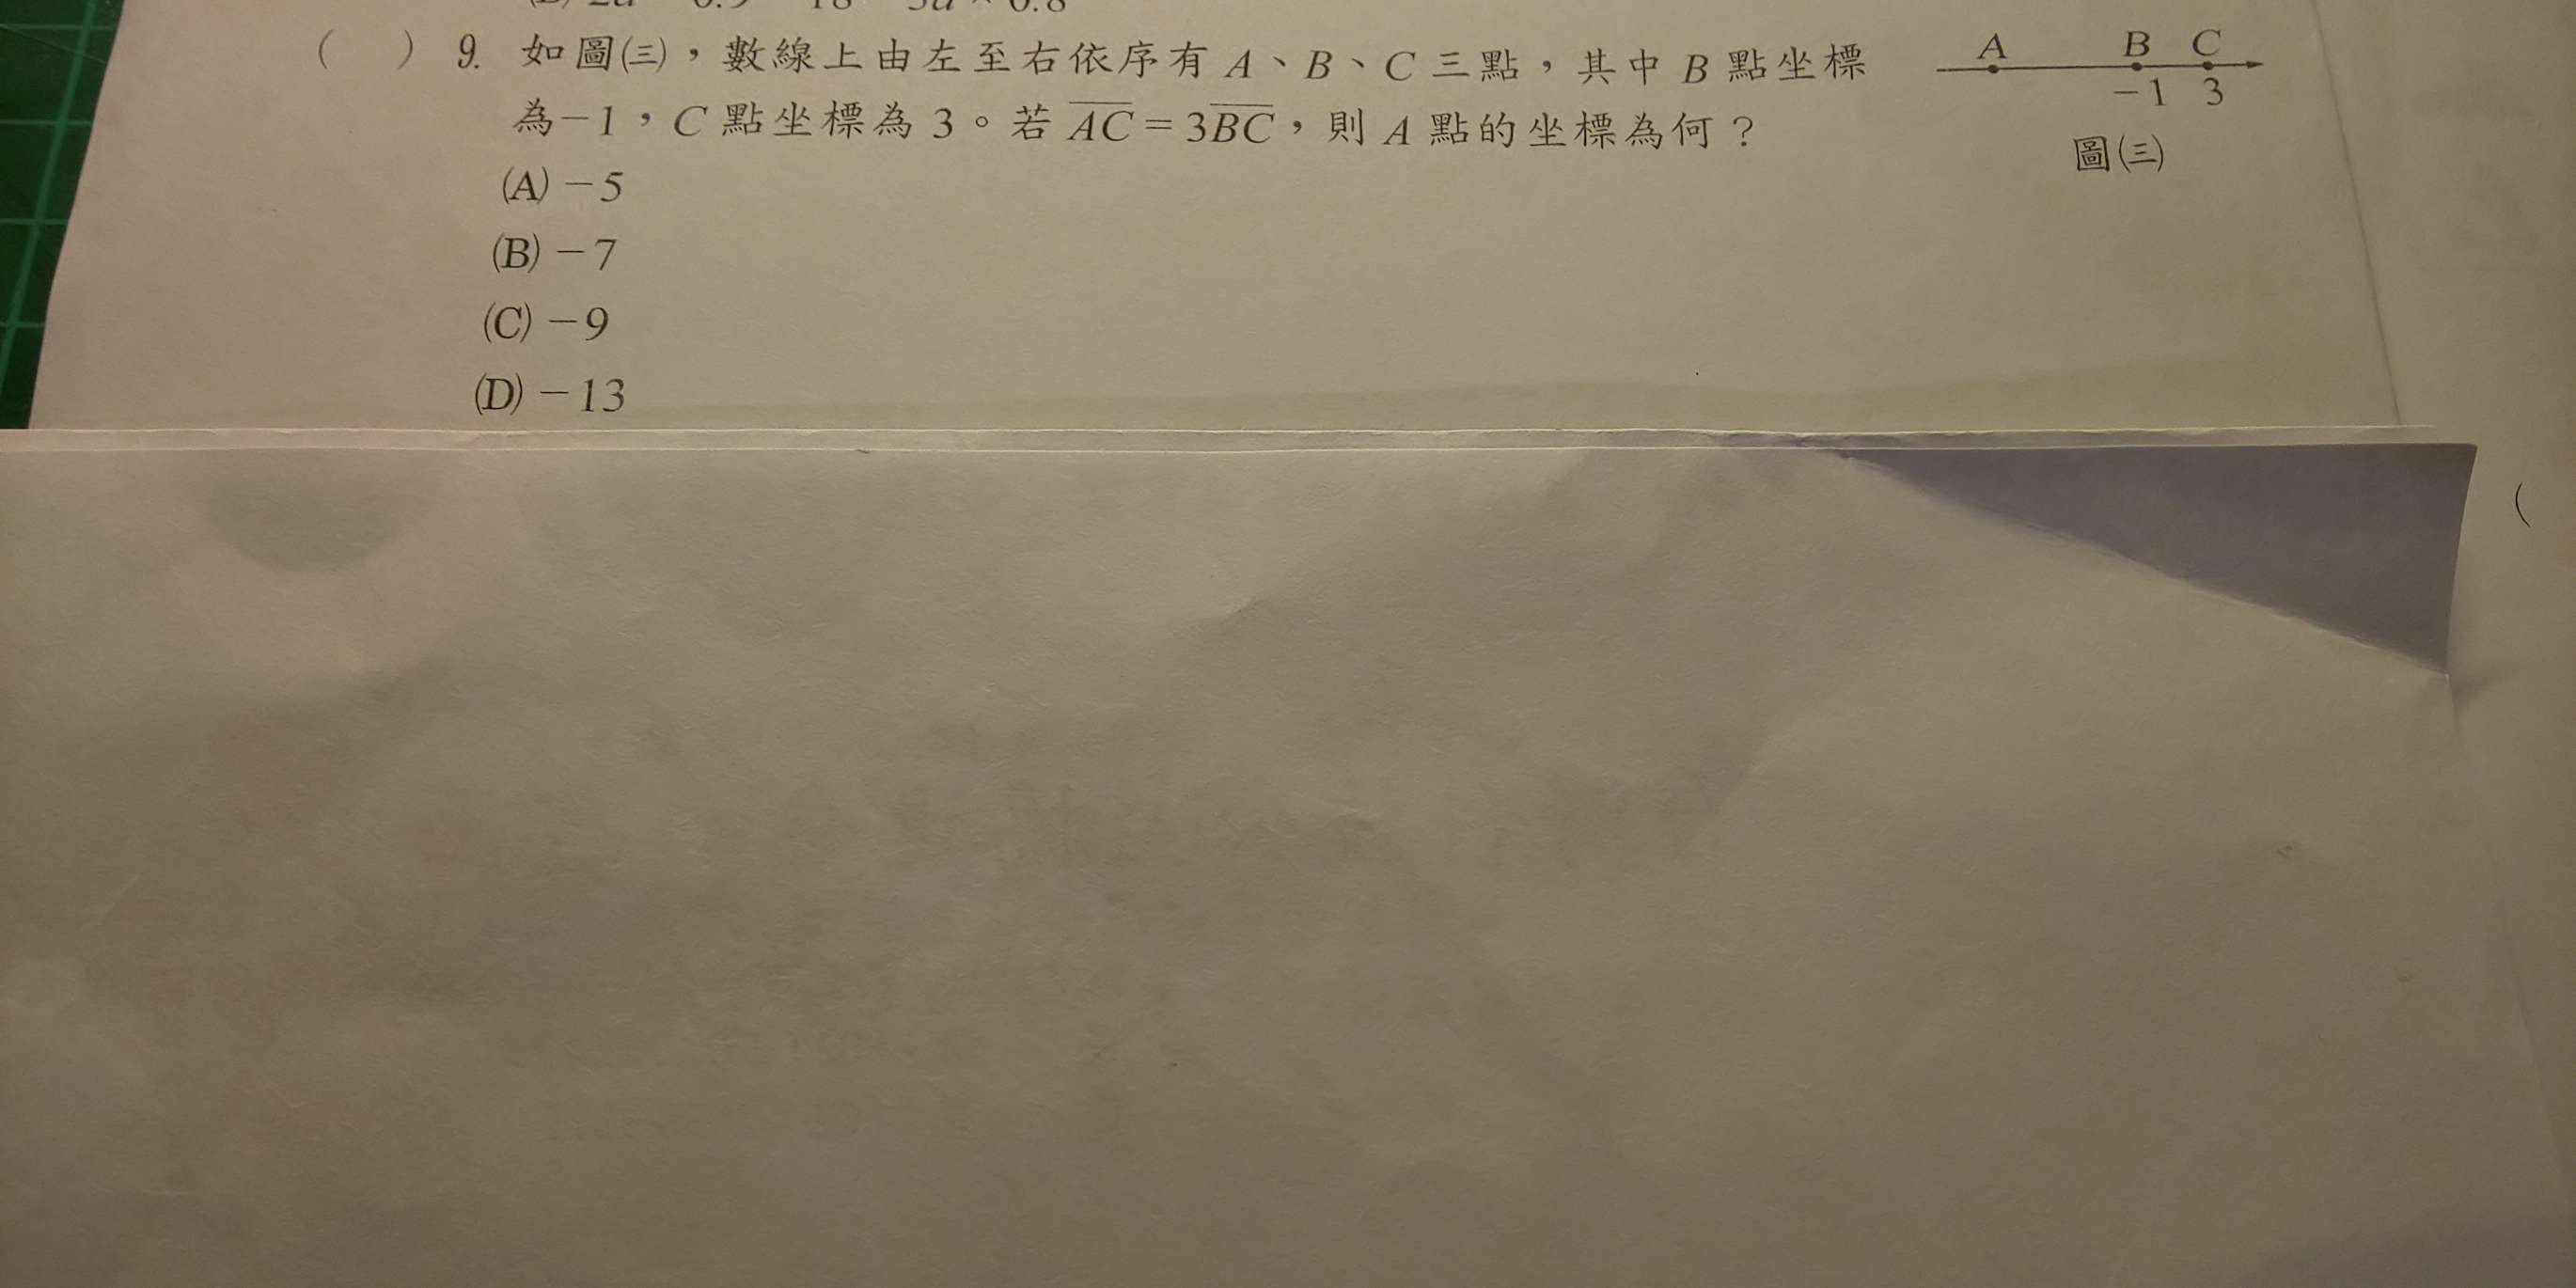 (　) 9. 如圖(三)，數線上由左至右依序有 A、B、C 三點，其中 B 點坐標
為－1，C 點坐標為 3。若 AC＝3BC，則 A 點的坐標為何？
(A)－5
(B)－7
(C)－9
(D)－13
A B C
－1 3
圖(三)
(